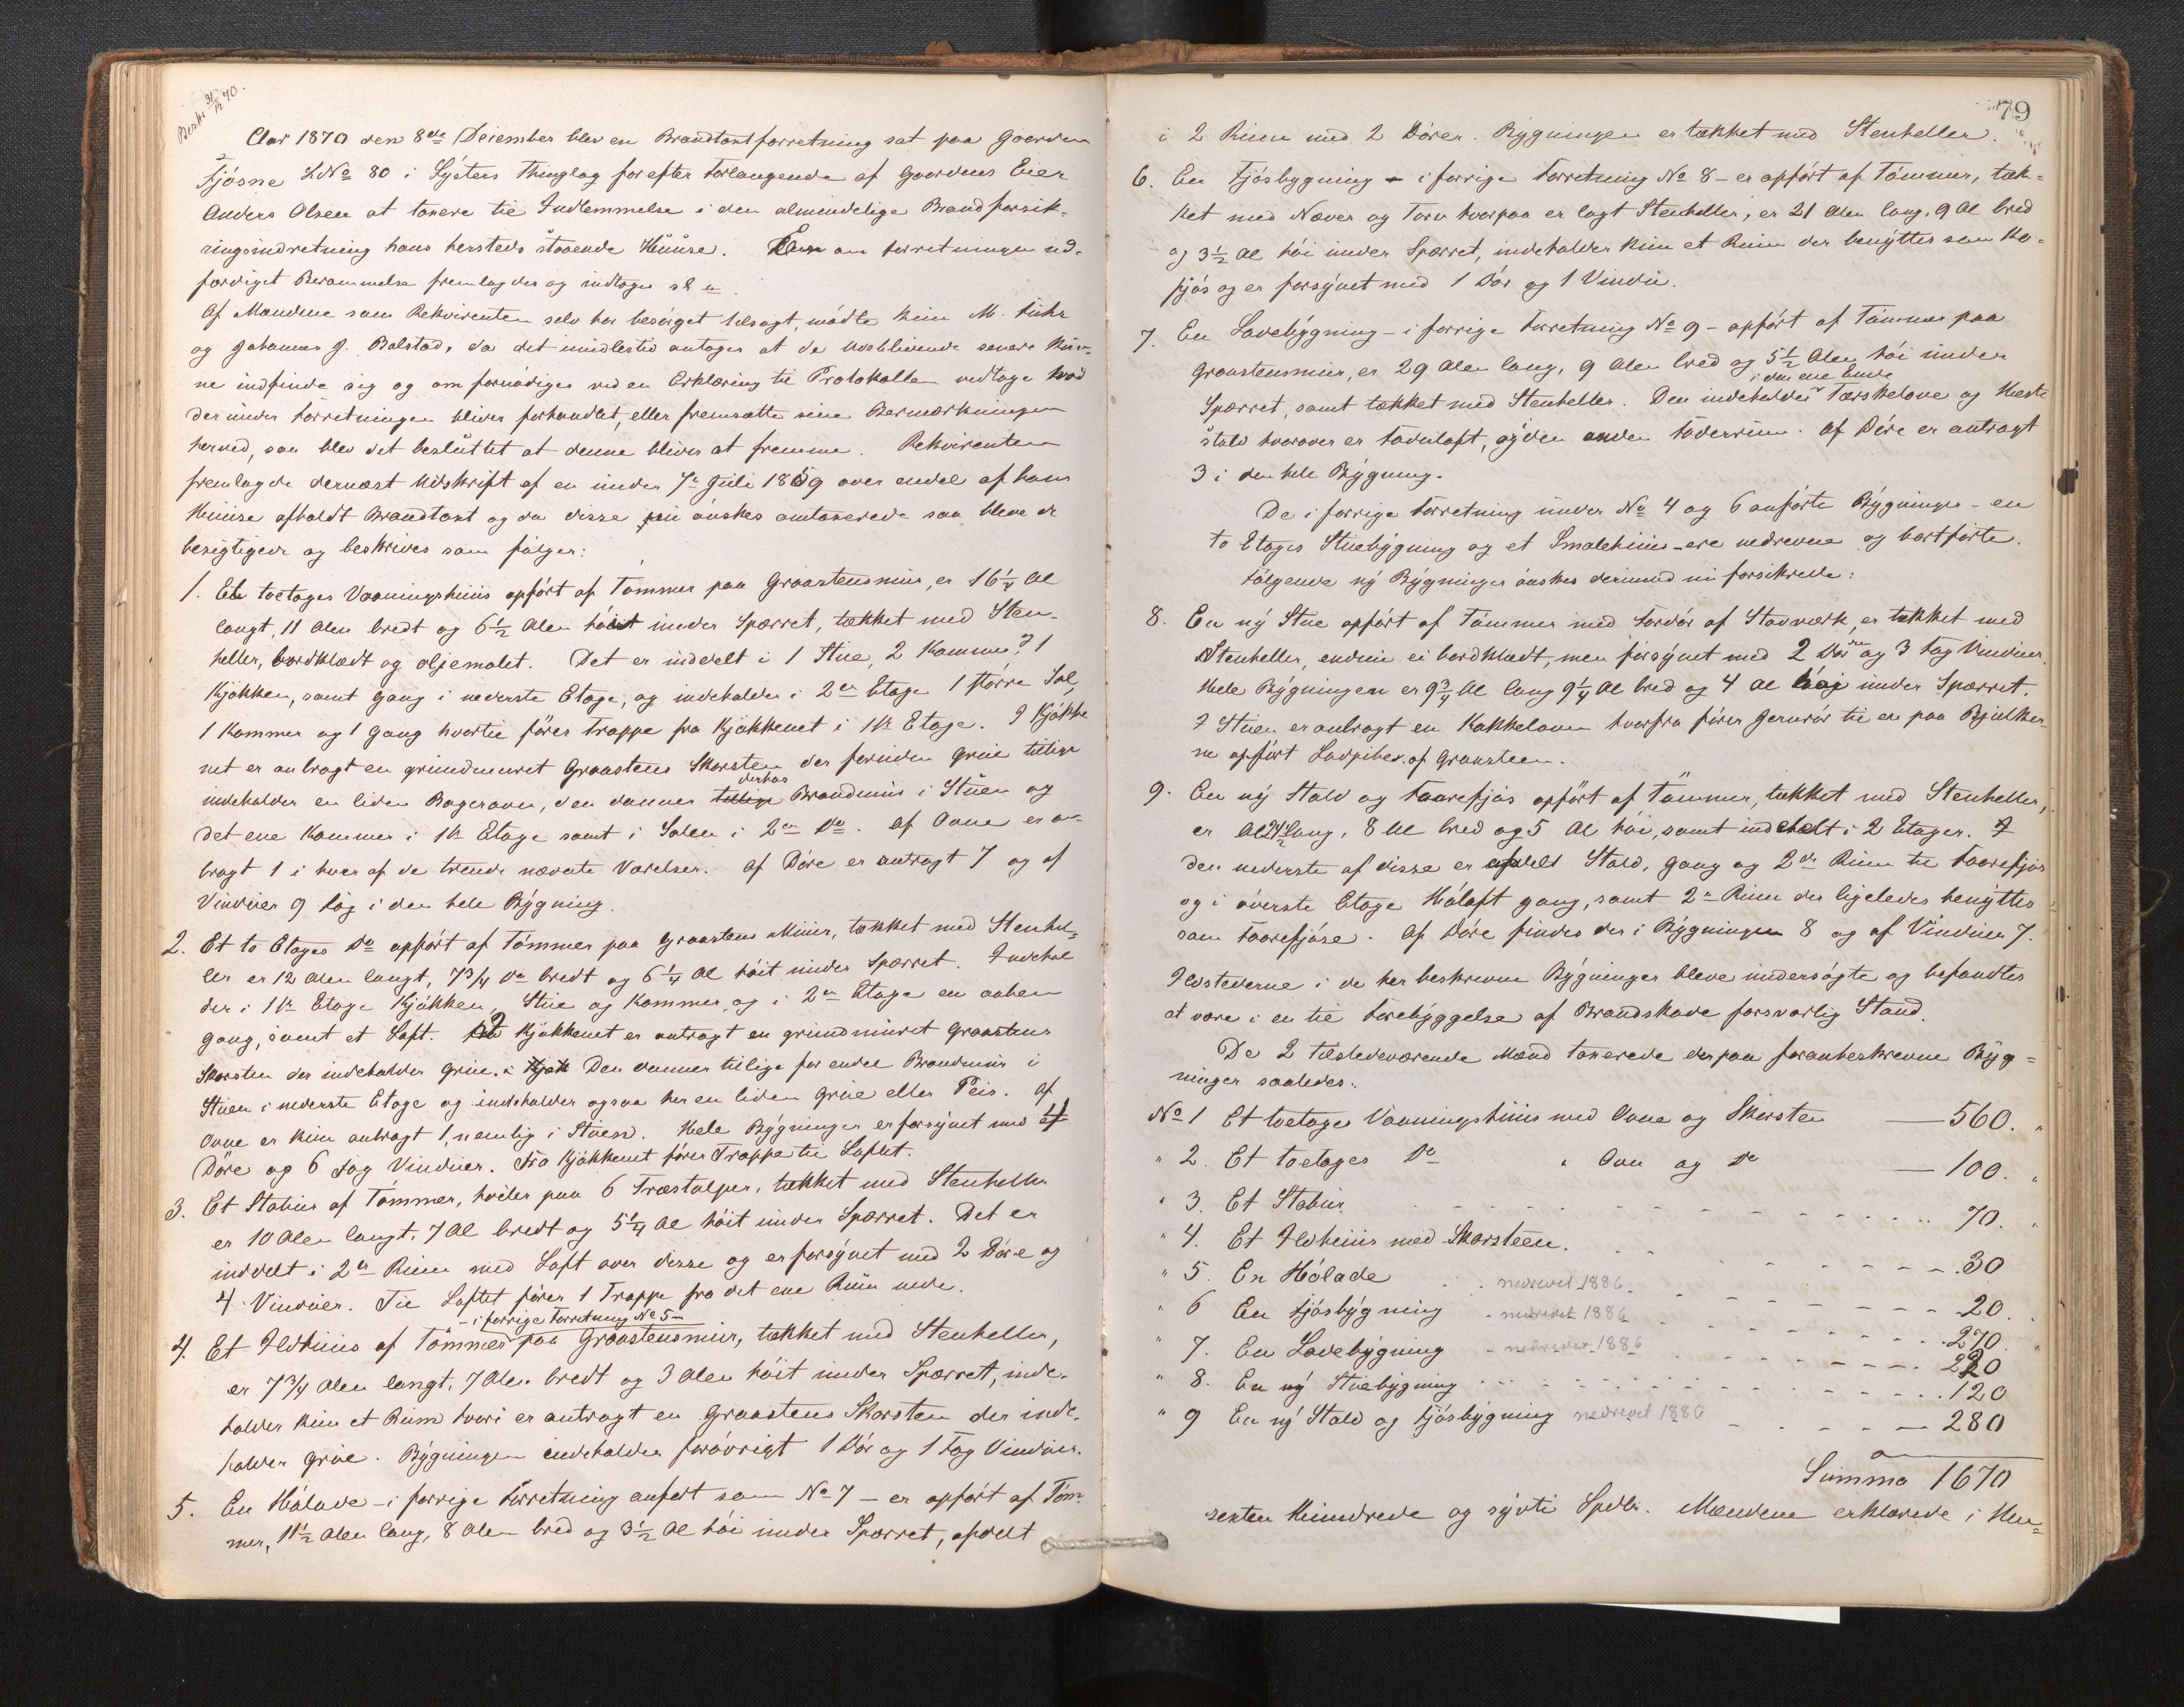 Beski 31/12 70.
Aar 1870 den 8de Deiember blev en Brandtaxtforretning sat paa Gaarden
Fjøsne LNo 80 i Lysters Thinglag for efter Forlangende af Gaardens Eier
Anders Olsen at taxere til Indlemmelse i den almindelige Brandforsik-
ringsindretning hans hersteds staaende Huuse. Den om Forretningen ud-
færdiget Berammelse fremlagdes og indtages sl
Af Mændene som Rekvirenten selv har besørget tilsagt, mødte kun M.
og Johannes J. Bolstad, da det imidlertid antages at de Udeblivende senere kun-
ne indfinde sig og om fornødiges ved en Erklæring til Protokollen vedtage hvad
der under Forretningen bliver forhandlet, eller fremsætte sine Bemærkninger
herved, saa blev det besluttet at denne bliver at fremme. Rekvirenten
fremlagde dernæst Udskrift af en under 7de Juli 1869 over endel af hans
Huuse afholdt Brandtaxt og da disse nu ønskes omtaxerede saa bleve de
besigtigede og beskrives som følger:
1. Et toetages Vaaningshuus opført af Tømmer paa Graastensmuur, er 16 1/4 Al
langt, 11 Alen bredt og 6 1/2 Alen høit under Sperret, tækket med Sten-
heller, bordklædt og oljemalet. Det er inddelt i 1 Stue, 2 Kammer, 1
Kjøkken, samt Gang i nederste Etage, og indeholder i 2den Etage 1 større Sal,
1 Kammer og 1 Gang hvortil fører Trappe fra Kjøkkenet i 1ste Etage. I Kjøkke
net er anbragt en grundmuret Graastens Skorsten der foruden Grue tillige
indeholder en liden Bagerovn, den danner tillige derhos Brandmuur i Stuen og
det ene Kammer i 1ste Etage samt i Salen i 2den Do. Af Ovne er an-
bragt 1 i hver af de trende nævnte Værelser. Af Døre er anbragt 7 og af
Vinduer 9 Fag i den hele Bygning.
2. Et to Etages Do opført af Tømmer paa Graastens Muur, tækket med Stenhel-
ler er 12 Alen langt, 7 3/4 Do bredt og 6 1/4 Al høit under Sperret. Indehol
der i 1ste Etage Kjøkken, Stue og Kammer, og i 2den Etage en aaben
Gang, samt et Loft. I Kjøkkenet er anbragt en grundmuret Graastens
Skorsten der indeholder Grue. i Kjøk Den danner tillige for endel Brandmuur i
Stuen i nederste Etage og indeholder ogsaa her en liden Grue eller Peis. Af
Ovne er kun anbragt 1, nemlig i Stuen. Hele Bygningen er forsynet med 4
Døre og 6 Fag Vinduer. Fra Kjøkkenet fører Trappe til Loftet.
3. Et Stabur af Tømmer, hviler paa 6 Træstolper, tækket med Stenheller
er 10 Alen langt, 7 Al bredt og 5 1/4 Al høit under Sperret. Det er
inddelt i 2de Rum med Loft over disse og er forsynet med 2 Døre og
4 Vinduer. Til Loftet fører 1 Trappe fra det ene Rum nede.
- i forrige Forretning No 5 -
4. Et Ildhuus af Tømmer paa Graastensmuur, tækket med Stenheller,
er 7 3/4 Alen langt, 7 Alen bredt og 3 Alen høit under Sperret, inde-
holder kun et Rum hvori er anbragt en Graastens Skorsten der inde-
holder Grue. Bygningen indeholder forøvrigt 1 Dør og 1 Fag Vinduer.
5. En Hølade - i forrige Forretning anført som No 7 - er opført af Tøm-
mer, 11 1/2 Alen lang, 8 Alen bred og 3 1/2 Al høi under Sperret, afdelt
79
i 2 Rum med 2 Døre. Bygningen er tækket med Stenheller.
6. En Fjøsbygning - i forrige Forretning No 8 - er opført af Tømmer, tæk-
ket med Næver og Torv hvorpaa er lagt Stenheller, er 21 Alen lang, 9 Al bred
og 3 1/2 Al høi under Sperret, indeholder kun et Rum der benyttes som Ko-
fjøs og er forsynet med 1 Dør og 1 Vindu.
7. En Ladebygning - i forrige Forretning No 9 - opført af Tømmer paa
Graastensmuur, er 29 Alen lang, 9 Alen bred og 5 1/2 Alen høi under
i den ene Ende
Sperret, samt tækket med Stenheller. Den indeholder Tærskelove og Heste
stald hvorover er Foderloft, og i den anden Foderrum. Af Døre er anbragt
3 i den hele Bygning.
De i forrige Forretning under No 4 og 6 anførte Bygninger - en
to Etages Stuebygning og et Smalehuus - ere nedrevne og bortførte.
Følgende ny Bygninger ønskes derimod nu forsikrede:
8. En ny Stue opført af Tømmer med Fordør af Stavværk, er tækket med
Stenheller, endnu ei bordklædt, men forsynet med 2 Døre og 3 Fag Vinduer.
Hele Bygningen er 9 3/4 Al lang 9 1/4 Al bred og 4 Al høj under Sperret.
I Stuen er anbragt en Kakkelovn hvorfra fører Jernrør til en paa Bjælker
ne opført Ladpibe af Graasteen.
9. En ny Stald og Faarefjøs opført af Tømmer, tækket med Stenheller,
er Al 24 1/2 lang, 8 Al bred og 5 Al høi, samt inddelt i 2 Etager. I
den nederste af disse er afdelt Stald, Gang og 2de Rum til Faarefjøs
og i øverste Etage Høloft gang, samt 2de Rum der ligeledes benyttes
som Faarefjøse. Af Døre findes der i Bygningen 8 og af Vinduer 7.
Ildstederne i de her beskrevne Bygninger bleve undersøgte og befandtes
at være i en til Forebyggelse af Brandskade forsvarlig Stand.
De 2 tilstedeværende Mænd taxerede derpaa foranbeskrevne Byg-
ninger saaledes:
No 1 Et toetages Vaaningshuus med Ovne og Skorsten — 560. "
" 2. Et toetages Do " Ovn og Do — 100. "
" 3. Et Stabur - - - 70. "
" 4. Et Ildhuus med Skorsteen. - - - 30
" 5. En Hølade - nedrevet 1886 - - - 20.
" 6 En Fjøsbygning - nedrevet 1886 - - - 270.
" 7. En Ladebygning - nedrevet 1886 - - - 220
" 8. En ny Stuebygning - - - 120
" 9 En ny Stald og Fjøsbygning nedrevet 1880 - - - 280
Summa 1670
sexten Hundrede og syvti Spdlr. Mændene erklærede i Hen-